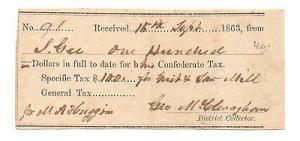 No. 91 Received 15th Sept 1863, from
one hundred
Dollars in full to date for his Confederate Tax.
Specific Tax $100.00 for Grist & Saw Mill
General Tax
for M A Huggins Geo
District Collector.